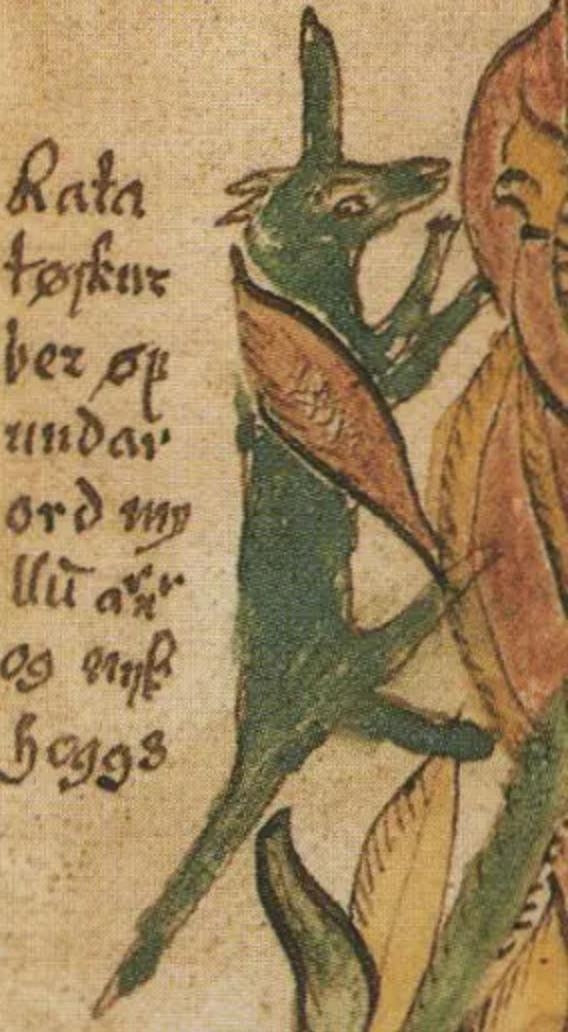 Rata
tøskur
ber øf
undar
ord my
llū arnar
og nijd
hoggs